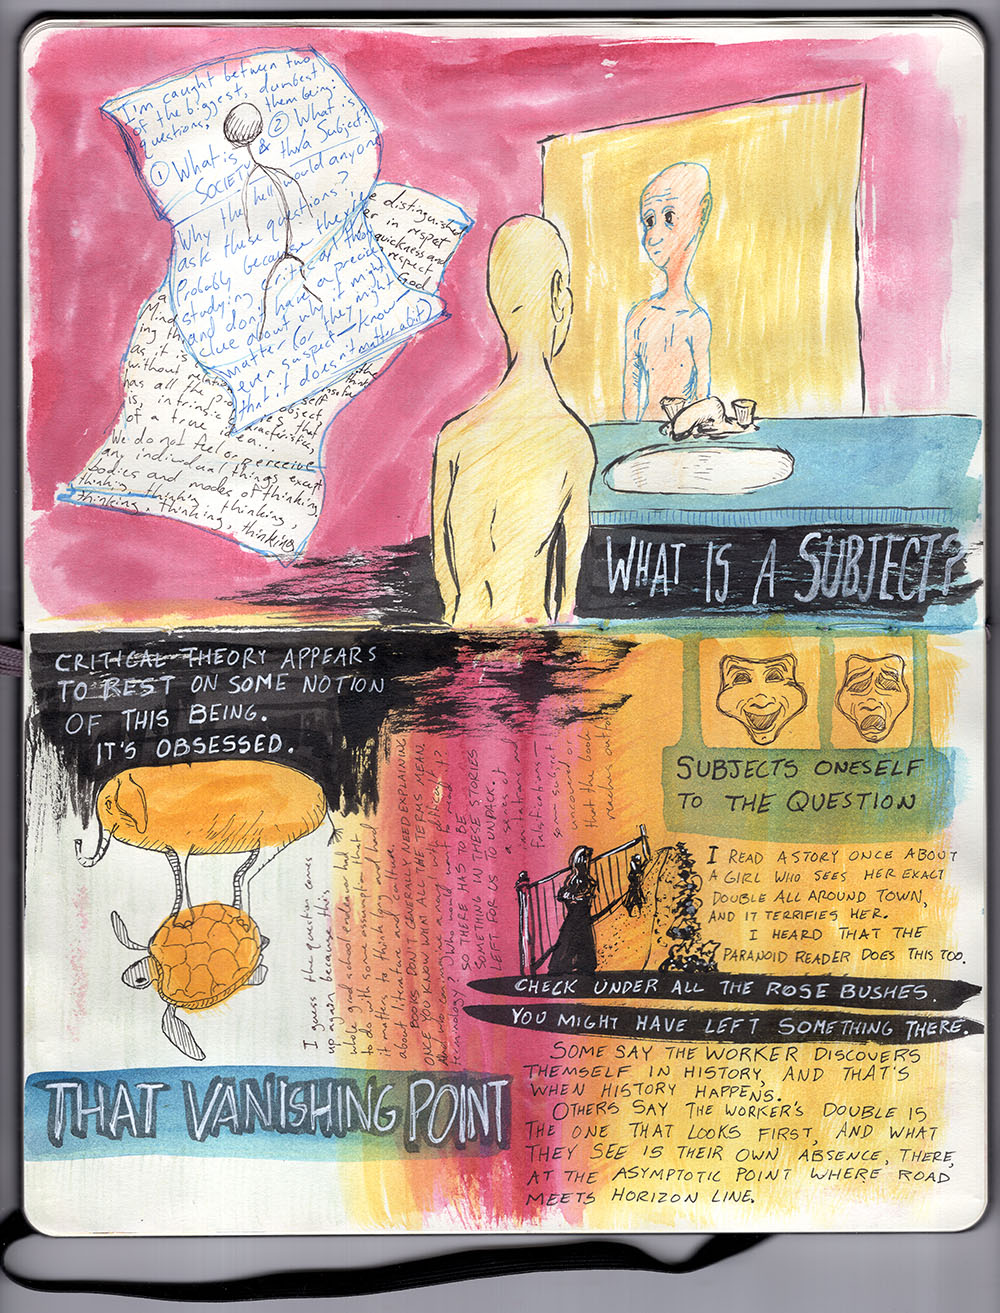 I'm caught between two
of the biggest, dumbest
questions, them being:
① What is
SOCIETY &
② What is
tha Subject?
Why the hell would anyone
ask these questions?
Probably because they're
studying crit lit or theory
and don't have a precise
clue about why it might
matter (or they might
even suspect – know –
that it does n't matter a bit)
e distinguished
er in respet
quickness and
respect
God
a
Mind
ing th
as it is
without relation
has all the pro
is, intrinsic
of a true idea...
object
that
characteristics,
"We do not feel or perceive
any individual things except
bodies and modes of thinking
thinking, thinking, thinking,
thinking, thinking, thinking
WHAT IS A SUBJECT?
CRITICAL THEORY APPEARS
TO REST ON SOME NOTION
OF THIS BEING.
IT'S OBSESSED.
I guess the question comes
up again because this
whole grad school endeavor had
to do with some assumption that
it matters to think long and hard
about literature and culture.
BOOKS DON'T GENERALLY NEED EXPLAINING
ONCE YOU KNOW WHAT ALL THE TERMS MEAN.
And who can have a novel with difficult
terminology? Who would want to read it?
SO THERE HAS TO BE
SOMETHING IN THESE STORIES
LEFT FOR US TO UNPACK.
a series of
imitations and
falsifications —
some subject is
uncovered or
that the book
reaches out to
SUBJECTS ONESELF
TO THE QUESTION
I READ A STORY ONCE ABOUT
A GIRL WHO SEES HER EXACT
DOUBLE ALL AROUND TOWN,
AND IT TERRIFIES HER.
I HEARD THAT THE
PARANOID READER DOES THIS TOO.
CHECK UNDER ALL THE ROSE BUSHES.
YOU MIGHT HAVE LEFT SOMETHING THERE.
THAT VANISHING POINT
SOME SAY THE WORKER DISCOVERS
THEMSELF IN HISTORY, AND THAT'S
WHEN HISTORY HAPPENS.
OTHERS SAY THE WORKER'S DOUBLE IS
THE ONE THAT LOOKS FIRST, AND WHAT
THEY SEE IS THEIR OWN ABSENCE, THERE,
AT THE ASYMPTOTIC POINT WHERE ROAD
MEETS HORIZON LINE.